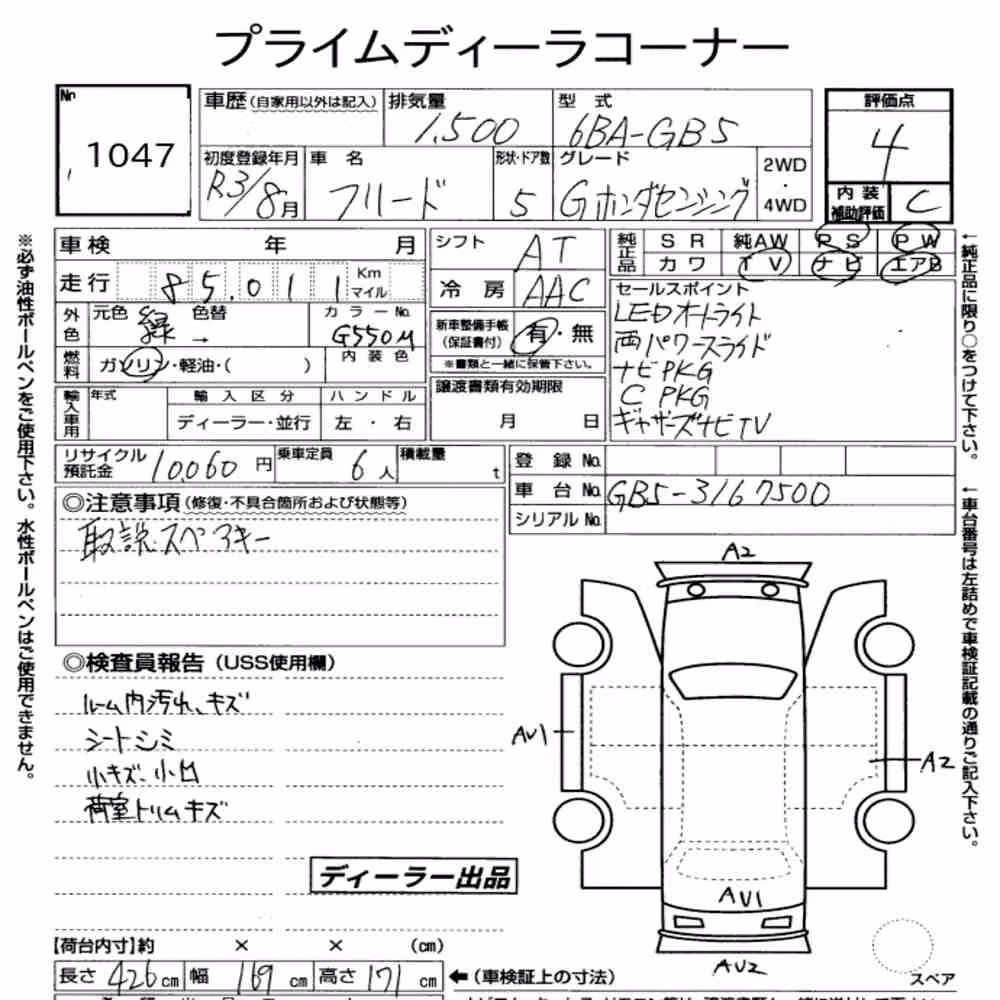 プライムディーラコーナー
No.
1047
車歴(自家用以外は記入)
排気量
1,500
型 式
6BA-GB5
評価点
4
初度登録年月
R3/8月
車 名
フリード
形状・ドア数
5
グレード
Gホンダセンシング
2WD
・
4WD
内装
補助評価
C
車検 年 月
走行 85,011 Km マイル
シフト AT
冷房 AAC
純正品 SR 純AW PS PW
カワ TV ナビ エアB
外色 元色 緑 色替 →
カラーNo. G550M
内装色
燃料 ガソリン・軽油・( )
新車整備手帳
(保証書付)
有・無
※書類と一緒に保管下さい。
セールスポイント
LEDオートライト
両パワースライド
ナビPKG
C PKG
ギャザーズナビTV
輸入車用 年式 輸入区分 ハンドル
ディーラー・並行 左・右
譲渡書類有効期限
月 日
リサイクル
預託金 10,060円
乗車定員 6人
積載量 t
登録No.
車台No. GB5-3167500
シリアルNo.
◎注意事項(修復・不具合箇所および状態等)
取説・スペアキー
◎検査員報告(USS使用欄)
ルーム内汚れ、キズ
シートシミ
小キズ、小凹
荷室トリムキズ
ディーラー出品
A2
AU1
A2
AU1
AU2
スペア
【荷台内寸】約 × × (cm)
長さ 426cm 幅 169cm 高さ 171cm ←(車検証上の寸法)
※必ず油性ボールペンをご使用下さい。水性ボールペンはご使用できません。
←純正品に限り○をつけて下さい。
←車台番号は左詰めで車検証記載の通りご記入下さい。